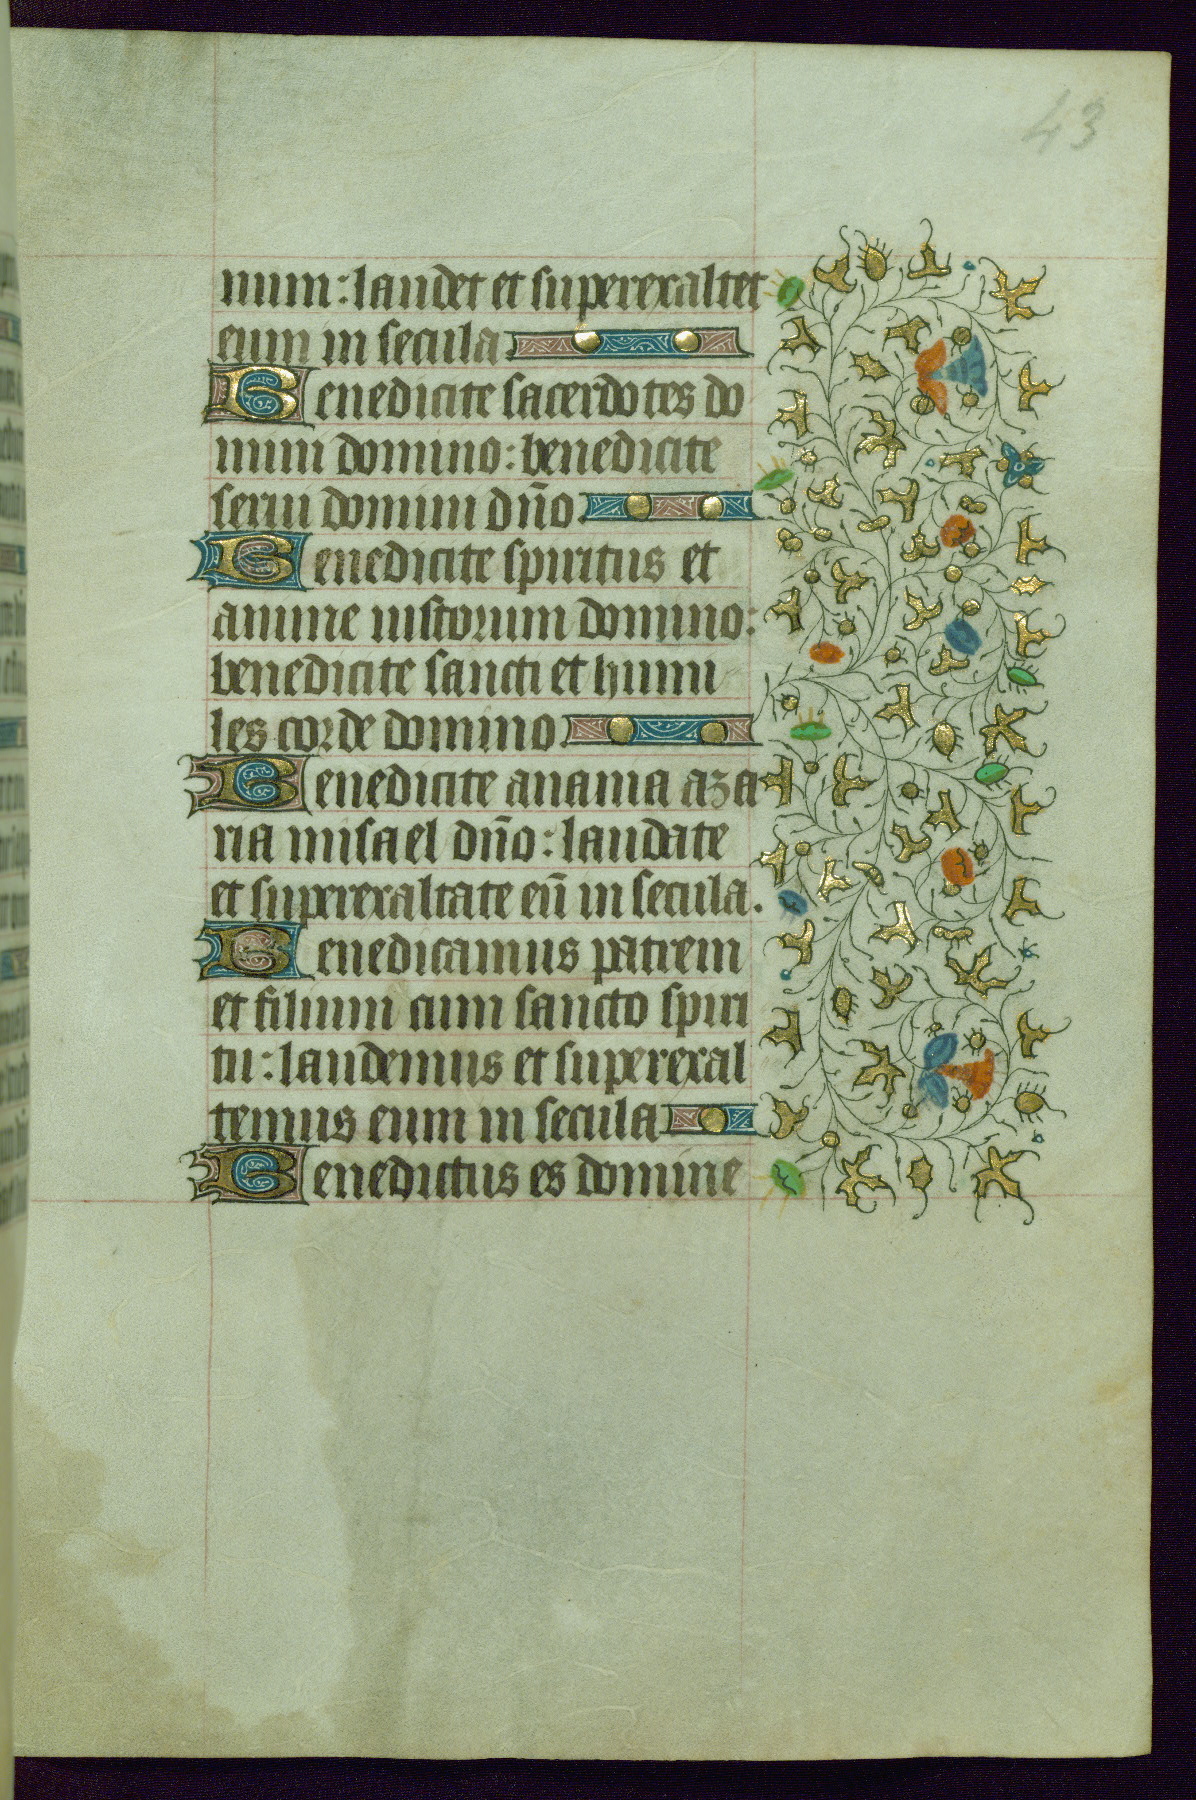 43
num: laudet et superexaltet
eum in secula
Benedicite sacerdotes do
mini domino: benedicite
serui domini dño.
Benedicite spiritus et
anime iustorum domino:
benedicite sancti et humi
les corde domino.
Benedicite anania aza
ria misael dño: laudate
et superexaltate eū in secula.
Benedicamus patrem
et filium cum sancto spiri
tu: laudemus et superexal
temus eum in secula
Benedictus es domine